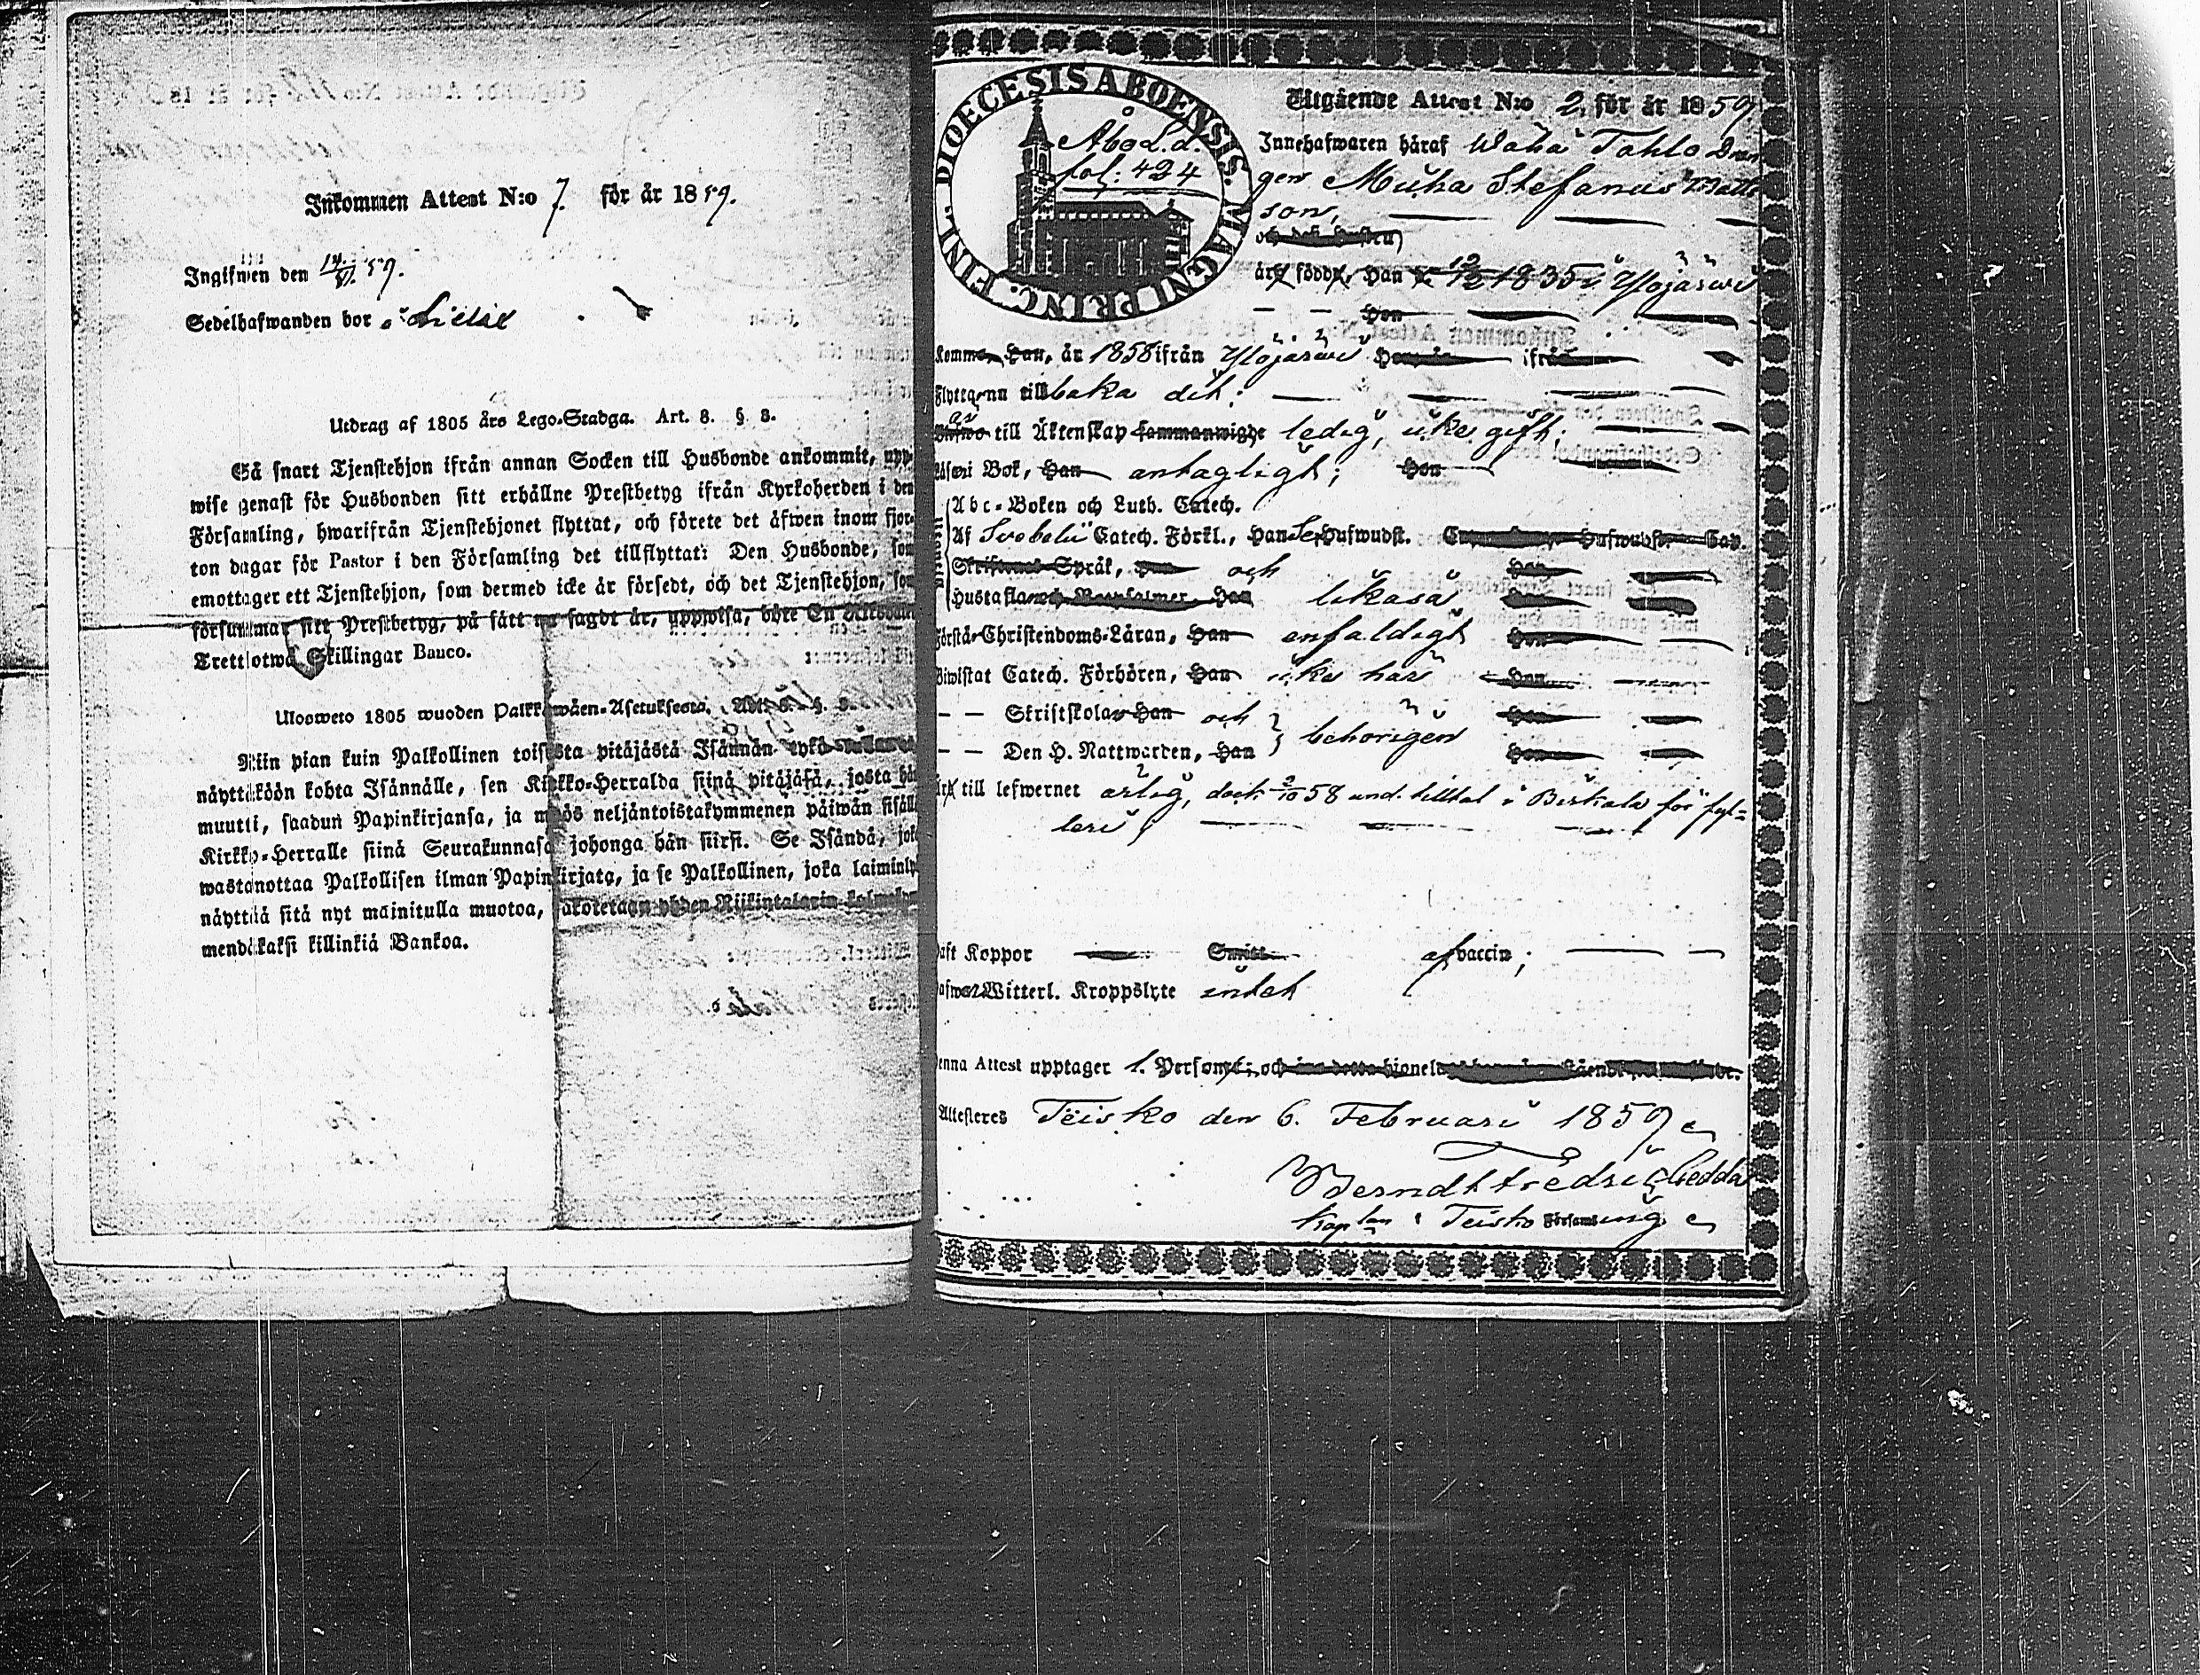 Inkommen Attest N:o 7. för år 1859.
Ingifwen den 59.
Sedelhafwanden bor å
Utdrag af 1805 års Lego-Stadga. Art. 8. § 8.
Så snart Tjenstehjon ifrån annan Socken till Husbonde ankommit, upp-
wise genast för Husbonden sitt erhållne Prestbetyg ifrån Kyrkoherden i den
Församling, hwarifrån Tjenstehjonet flyttat, och förete det äfwen inom fjor-
ton dagar för Pastor i den Församling det tillflyttat: Den Husbonde, som
emottager ett Tjenstehjon, som dermed icke är försedt, och det Tjenstehjon, som
försummar sitt Prestbetyg, på sätt nu sagdt är, uppwisa, böte En
Trettiotwå Skillingar Banco.
Ulosweto 1805 wuoden Palkkawäen-Asetuksesta. § 8.
Niin pian kuin Palkollinen toisesta pitäjästä Isännän tykö
näyttäköön kohta Isännälle, sen Kirkko-Herralda siinä pitäjäsä, josta hän
muutti, saadun Papinkirjansa, ja myös neljäntoistakymmenen päiwän sisällä
Kirkko-Herralle siinä Seurakunnasa johonga hän siirsi. Se Isändä, joka
wastanottaa Palkollisen ilman Papinkirjata, ja se Palkollinen, joka laiminlyö
näyttää sitä nyt mainitulla muotoa, sakotetaan yhden Riikintalarin kolmekym-
mendäkaksi killinkiä Bankoa.
DIOECESIS ABOENSIS. MAGNI PRINC. FINL.
Åbo L. d.
fol: 424
Utgående Attest N:o 2, för år 1859
Innehafwaren häraf Wäha Tohlo Drän
gen Muha Stefanus Matts
son,
och dess hustru
är född, Han 12/12 1835 i Ylöjärwi
Hon
Komma, Han, år 1858 ifrån Ylöjärwi Hon ifrån
Flyttar nu tillbaka dit;
är till Äktenskap sammanwigde ledig, icke gift;
Läser i Bok, Han antagligt; Hon
Abc-Boken och Luth. Catech.
Af Svebelii Catech. Förkl., Han Hufwudst. Hufwudst.
Skriftenes Språk, och Hon
Hustaflan likaså
Förstår Christendoms-Läran, Han enfaldigt Hon
Biwistat Catech. Förhören, Han icke här Hon
— — Skriftskolan Han och Hon
— — Den H. Nattwarden, Han behörigen Hon
Är till lefwernet ärlig, dock 2/10 58 und. tilltal i Birkala för fyl-
leri;
Haft Koppor Smitt af vaccin;
Hafwer Witterl. Kroppslyte intet
Denna Attest upptager 1. Person;
Attesteres Teisko den 6. Februari 1859
Berndt Fredric Gedda
Kaplan i Teisko Församling